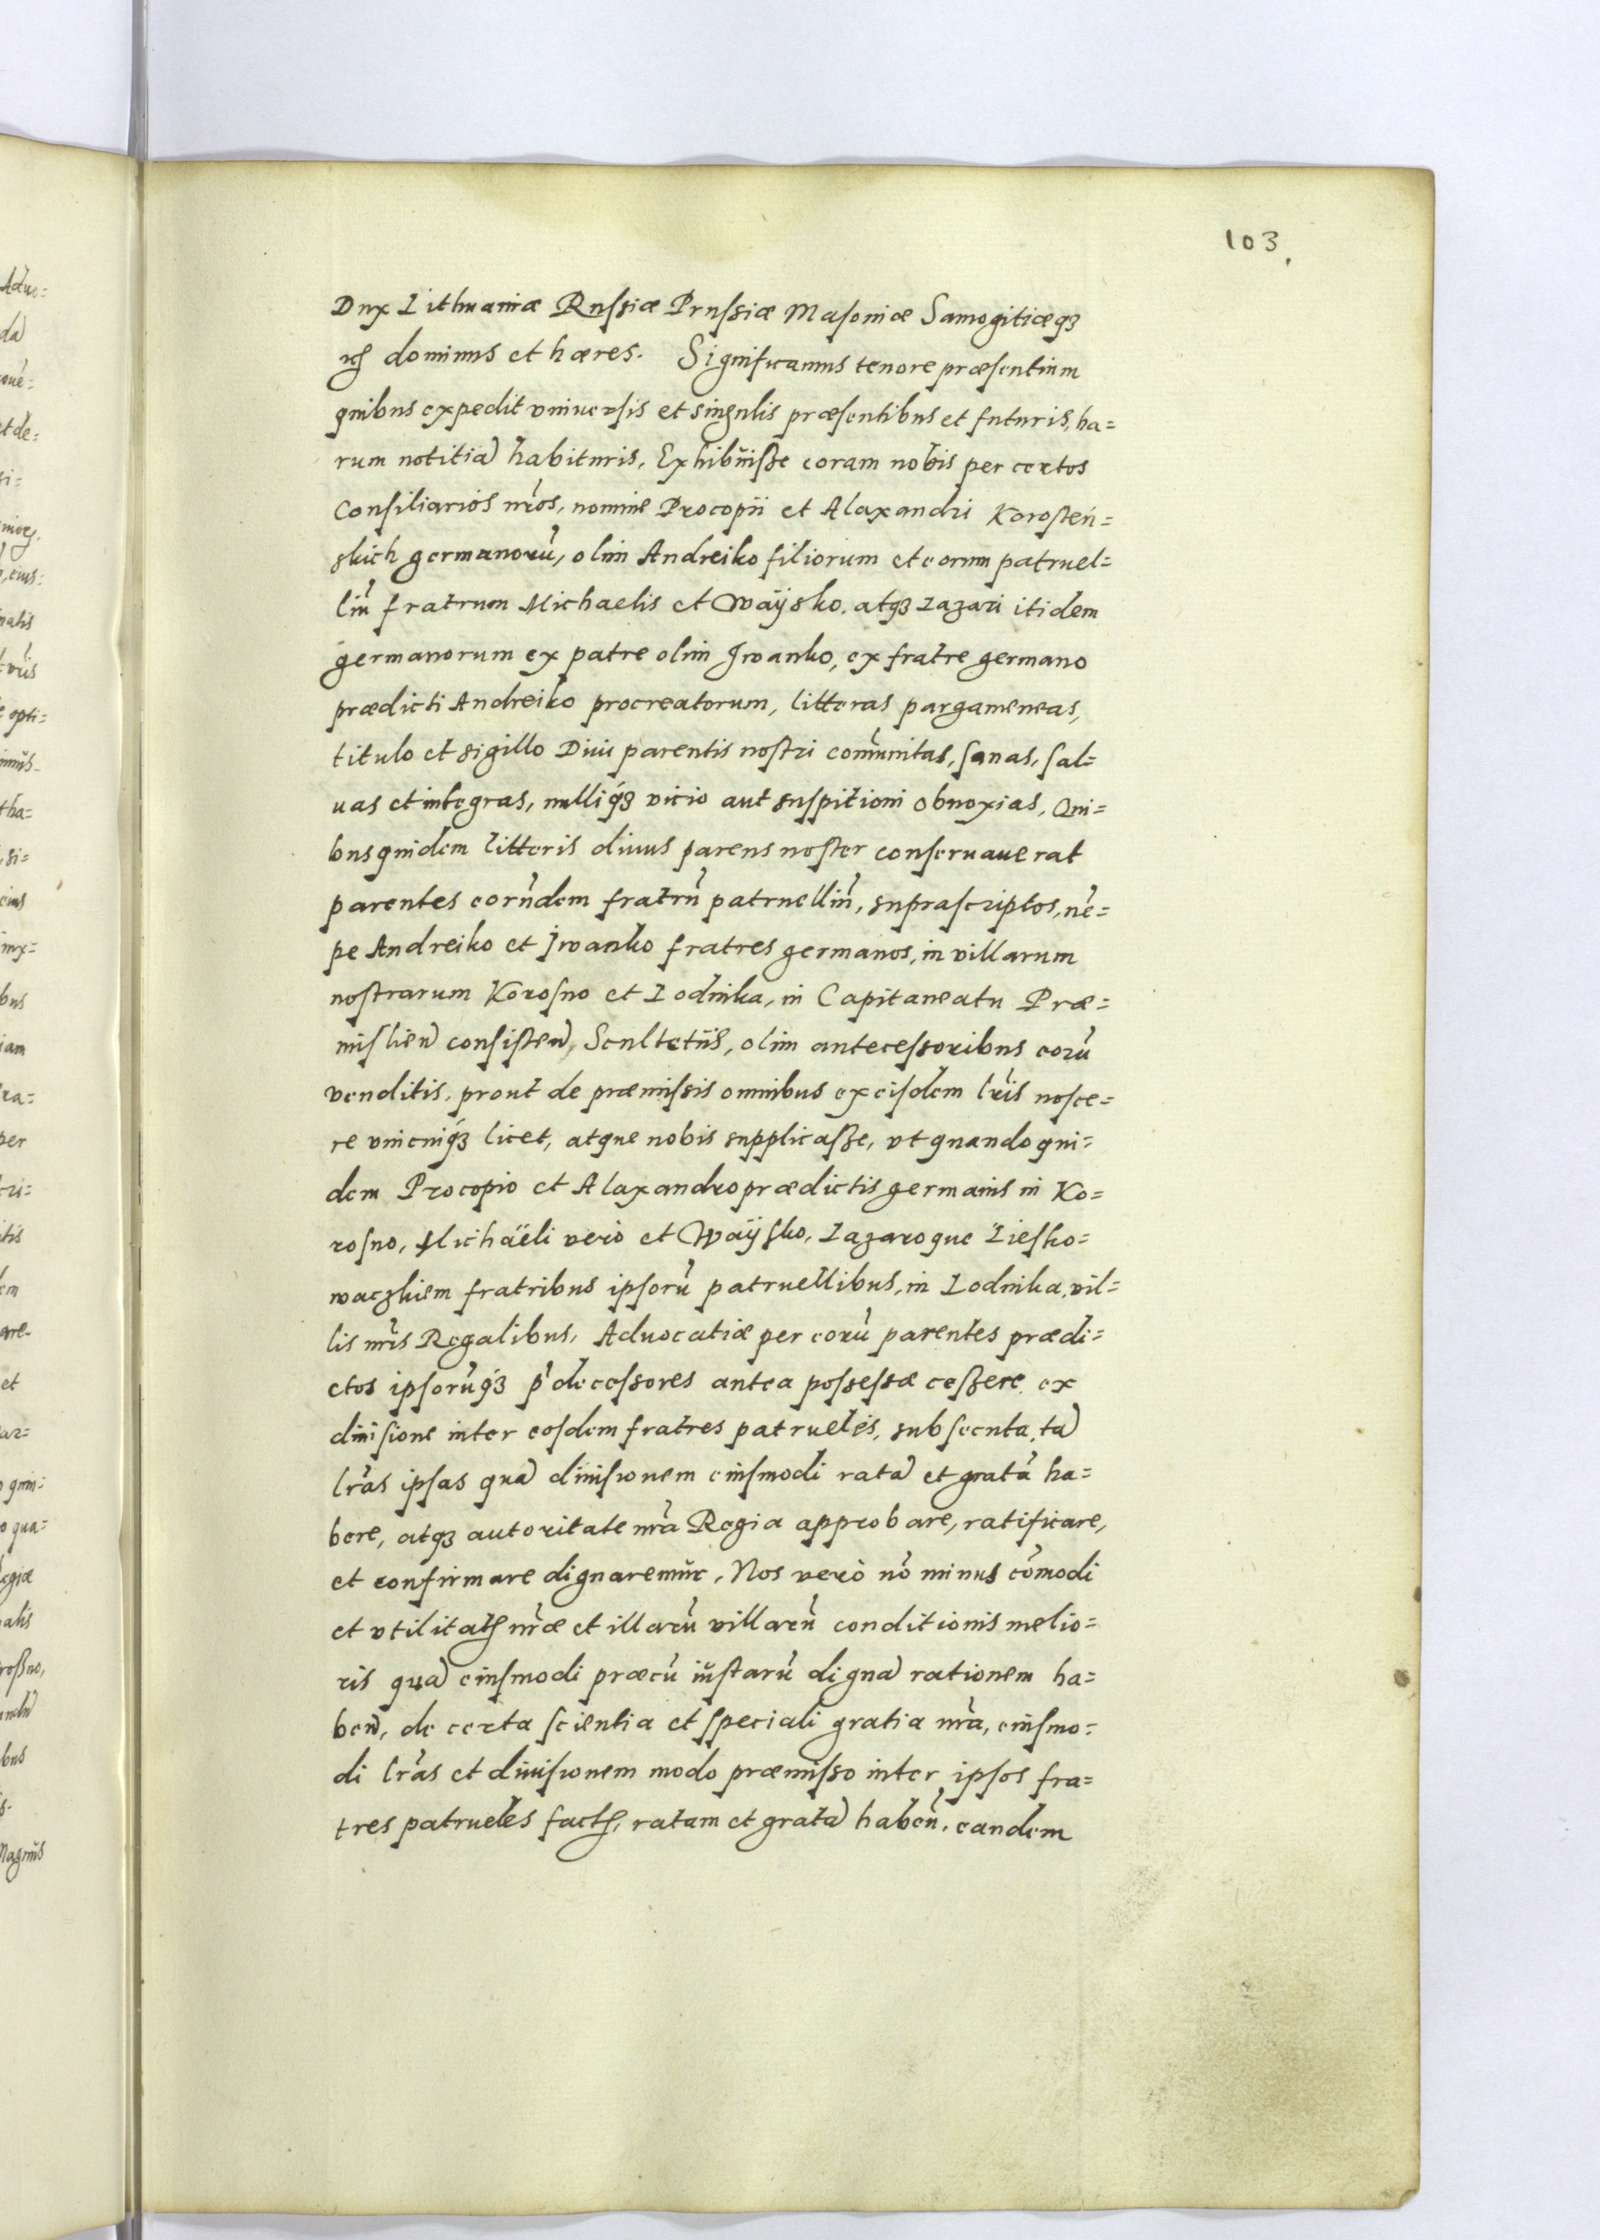 103.
Dux Lithuaniæ Russiæ Prussiæ Masoviæ Samogitiæq3
etc̃ dominus et hæres. Significamus tenore præsentium
quibus expedit vniuersis et singulis præsentibus et futuris, ha=
rum notitiã habituris, Exhibuisse coram nobis per certos
Consiliarios nr̃os, nomine Procopii et Alaxandri Korosteń=
skich germanorũ, olim Andreiko filiorum et eorum patruel=
liũ fratrum Michaelis et Waÿsko, atq3 Lazari itidem
germanorum ex patre olim Jwanko, ex fratre germano
prædicti Andreiko procreatorum, litteras pargameneas,
titulo et sigillo Diui parentis nostri com̃unitas, sanas, sal=
uas et integras, nulliq́3 vicio aut suspitioni obnoxias, Qui=
bus quidem litteris diuus parens noster conseruauerat
parentes eorũdem fratrũ patrueliũ, suprascriptos, nẽ=
pe Andreiko et Jwanko fratres germanos, in villarum
nostrarum Korosno et Lodinka, in Capitaneatu Præ=
mislieñ consisteñ, Scultetiis, olim antecessoribus eorũ
venditis, prout de præmissis omnibus ex eisdem lr̃is nosce=
re vnicuiq́3 licet, atque nobis supplicasse, vt quando qui=
dem Procopio et Alaxandro prædictis germanis in Ko=
rosno, Michaëli verò et Waÿsko, Lazaroque Liesko=
waczkiem fratribus ipsorũ patruellibus, in Lodinka, vil=
lis nr̃is Regalibus, Aduocatiæ per eorũ parentes prædi=
ctos ipsorũq́3 p̃decessores antea possessæ cessere ex
diuisione inter eosdem fratres patrueles, subsecuta, tã
lr̃as ipsas quã diuisionem eiusmodi ratã et gratã ha=
bere, atq3 autoritate nr̃a Regia approbare, ratificare,
et confirmare dignaremur. Nos verò nõ minus cõmodi
et vtilitatis nr̃æ et illarũ villarũ conditionis melio=
ris quã eiusmodi præcũ iustarũ dignã rationem ha=
beñ, de certa scientia et speciali gratia nr̃a, eiusmo=
di lr̃as et diuisionem modo præmisso inter ipsos fra=
tres patrueles factã, ratam et gratã habeñ, eandem